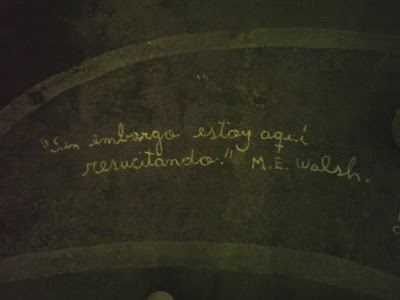 "Sin embargo estoy aquí
resucitando." M.E. Walsh.